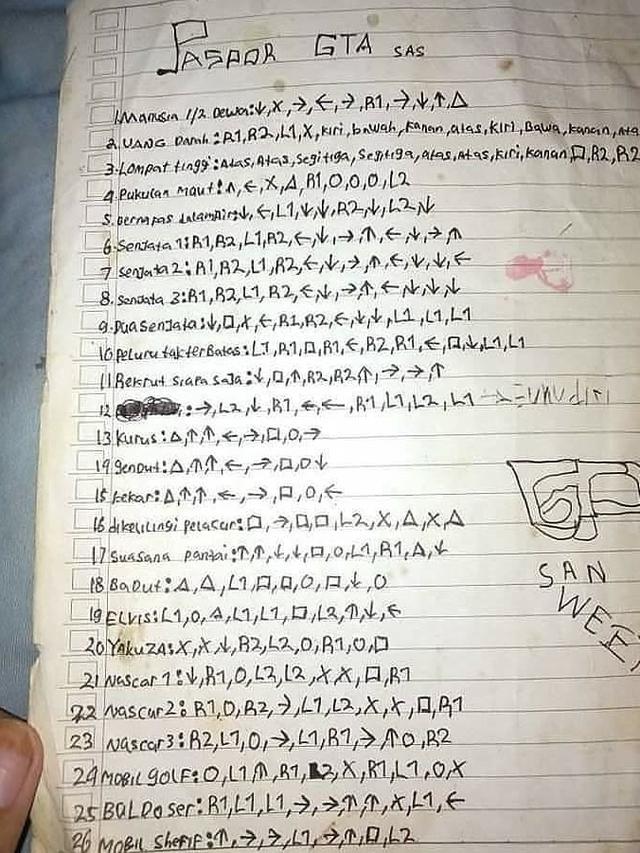 PASPOR GTA SAS
1.Manusia 1/2 Dewa:↓,X,→,←,→,R1,→,↓,↑,△
2.UANG Darah:R1,R2,L1,X,Kiri,bawah,Kanan,atas,Kiri,Bawa,Kanan,Ata
3.Lompat tinggi:Atas,Atas,Segitiga,Segitiga,atas,Atas,kiri,kanan,□,R2,R2
4 Pukulan maut:↑,←,X,△,R1,O,O,O,L2
5.bernapas dalamAir:↓,←,L1,↓,↓,R2,↓,L2,↓
6.SenJata 1:R1,R2,L1,R2,←,↓,→,↑,←,↓,→,↑
7 senJata2:R1,R2,L1,R2,←,↓,→,↑,←,↓,↓,←
8.senJata 3:R1,R2,L1,R2,←,↓,→,↑,←,↓,↓,↓
9.DuaSenJata:↓,□,X,←,R1,R2,←,↓,↓,L1,L1,L1
10 Peluru takterBatas:L1,R1,□,R1,←,R2,R1,←,□,↓,L1,L1
11 Rekrut siapa saJa:↓,□,↑,R2,R2,↑,→,→,↑
12 :→,L2,↓,R1,←,←,R1,L1,L2,L1
13 Kurus:△,↑,↑,←,→,□,O,→
14 gendut:△,↑,↑,←,→,□,O↓
15 kekar:△,↑,↑,←,→,□,O,←
16 dikelilingi pelacur:□,→,□,□,L2,X,△,X,△
17 Suasana pantai:↑,↑,↓,↓,□,O,L1,R1,△,↓
18 BaDut:△,△,L1,□,□,O,□,↓,O
19 ELVIS:L1,O,△,L1,L1,□,L2,↑,↓,←
20 YAKUZA:X,X,↓,R2,L2,O,R1,O,□
21 Nascar 1:↓,R1,O,L2,L2,X,X,□,R1
22 Nascar2:R1,O,R2,→,L1,L2,X,X,□,R1
23 Nascar3:R2,L1,O,→,L1,R1,→,↑O,R2
24 MOBIL GOLF:O,L1,↑,R1,L2,X,R1,L1,O,X
25 BULDoser:R1,L1,L1,→,→,↑,↑,X,L1,←
26 MOBIL SheriF:↑,→,→,L1,→,↑,□,L2
SAN
WEE